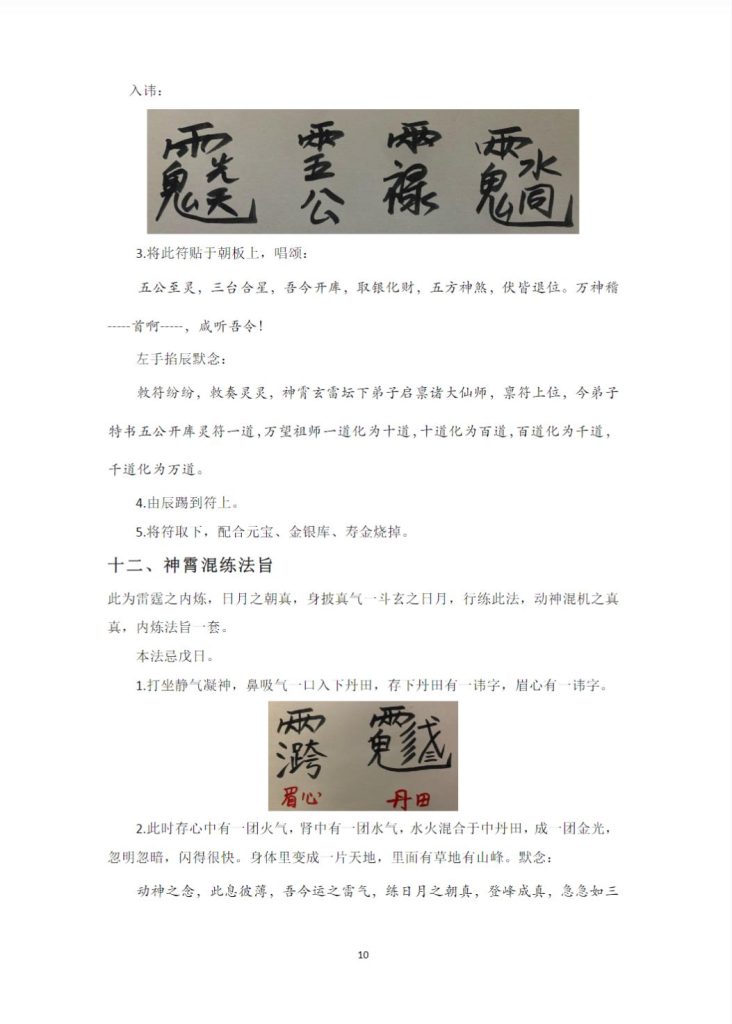 入讳：
3.将此符贴于朝板上，唱颂：
五公至灵，三台合星，吾今开库，取银化财，五方神煞，伏皆退位。万神稽
-----首啊-----，咸听吾令！
左手掐辰默念：
敕符纷纷，敕奏灵灵，神霄玄雷坛下弟子启禀诸大仙师，禀符上位，今弟子
特书五公开库灵符一道，万望祖师一道化为十道，十道化为百道，百道化为千道，
千道化为万道。
4.由辰踢到符上。
5.将符取下，配合元宝、金银库、寿金烧掉。
十二、神霄混练法旨
此为雷霆之内炼，日月之朝真，身披真气一斗玄之日月，行练此法，动神混机之真
真，内炼法旨一套。
本法忌戊日。
1.打坐静气凝神，鼻吸气一口入下丹田，存下丹田有一讳字，眉心有一讳字。
眉心 丹田
2.此时存心中有一团火气，肾中有一团水气，水火混合于中丹田，成一团金光，
忽明忽暗，闪得很快。身体里变成一片天地，里面有草地有山峰。默念：
动神之念，此息彼薄，吾今运之雷气，练日月之朝真，登峰成真，急急如三
10